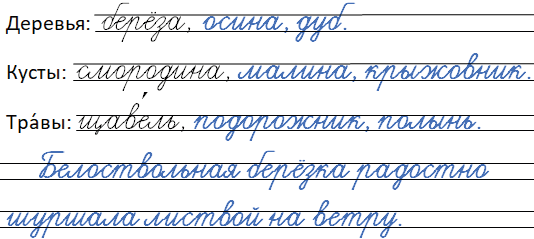 Деревья: берёза, осина, дуб.
Кусты: смородина, малина, крыжовник.
Тра́вы: щаве́ль, подорожник, полынь.
Белоствольная берёзка радостно
шуршала листвой на ветру.